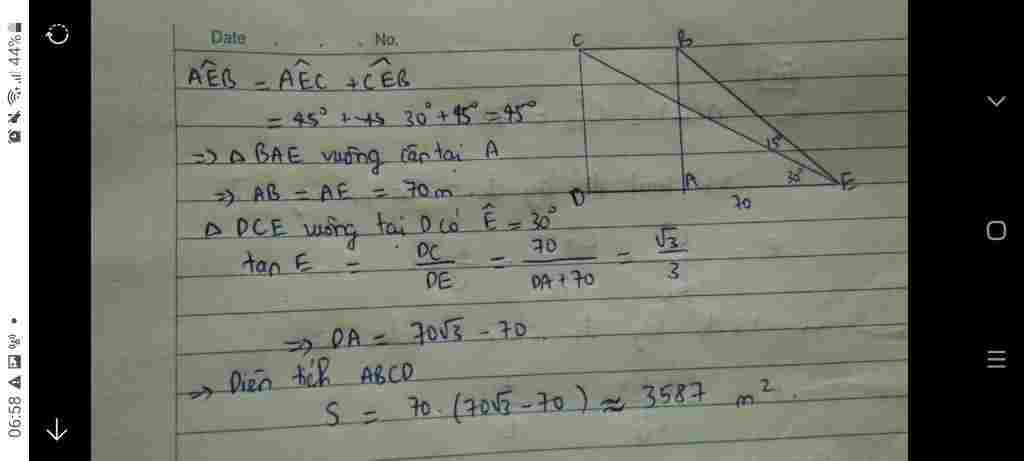 Date . . . No.
AÊB = AÊC + CÊB
= 45° + 45 30° + 45° = 45°
=> Δ BAE vuông cân tại A
=> AB = AE = 70m
Δ DCE vuông tại D có Ê = 30°
tan E = DC/DE = 70/DA+70 = √3/3
=> DA = 70√3 - 70
=> Diên tích ABCD
S = 70. (70√3 - 70) ≈ 3587 m².
C B
15°
30°
D A E
70
06:58
44%